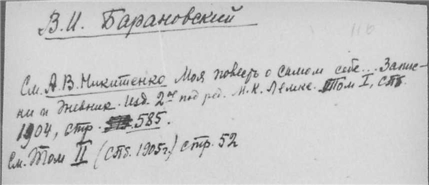 В.И. Барановский
См. А.В. Никитенко Моя повесть о самом себе... Запис-
ки и дневник. Изд. 2ое под ред. М.К. Лемке. Том I, СПб
1904, стр. 585.
См. Том II (СПб. 1905 г.) стр. 52